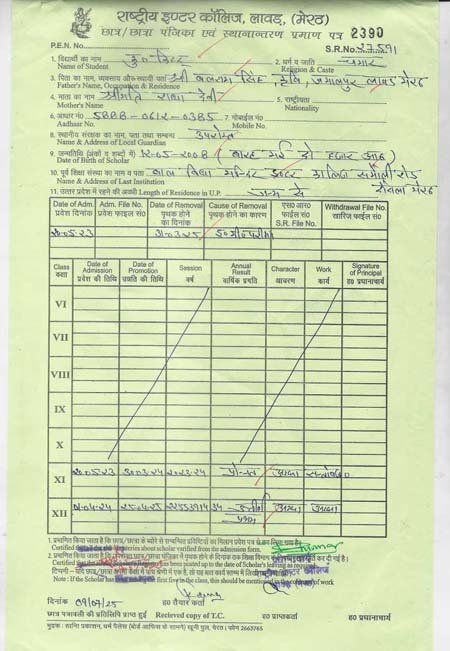 राष्ट्रीय इण्टर कॉलिज, लावड़, (मेरठ)
छात्र/छात्रा पंजिका एवं स्थानान्तरण प्रमाण पत्र 2390
P.E.N. No. S.R.No. 27591
1. विद्यार्थी का नाम कु०
Name of Student
2. धर्म व जाति चमार
Religion & Caste
3. पिता का नाम, व्यवसाय और स्थायी पता श्री बलराम सिंह, कृषि, जमालपुर लावड मेरठ
Father's Name, Occupation & Residence
4. माता का नाम श्रीमति राधा देवी
Mother's Name
5. राष्ट्रीयता
Nationality
6. आधार नं० 5888-0612-0385
Aadhaar No.
7. मोबाईल नं०
Mobile No.
8. स्थानीय संरक्षक का नाम, पता तथा सम्बन्ध उपरोक्त
Name & Address of Local Guardian
9. जन्मतिथि (अंकों व शब्दों में) 12-05-2008 (बारह मई दो हजार आठ)
Date of Birth of Scholar
10. पूर्व शिक्षा संस्था का नाम व पता बाल विद्या मन्दिर इण्टर कालिज रोड मेरठ
Name & Address of Last Institution
11. उत्तर प्रदेश में रहने की अवधी Length of Residence in U.P. जन्म से
Date of Adm. Adm. File No. Date of Removal Cause of Removal एस०आर० Withdrawal File No.
प्रवेश दिनांक प्रवेश फाईल सं० पृथक होने का दिनांक पृथक होने का कारण फाईल सं० खारिज फाईल सं०
S.R. File No.
20-05-23 31-03-25
Class Date of Admission Date of Promotion Session Annual Result Character Work Signature of Principal
कक्षा प्रवेश की तिथि उन्नति की तिथि वर्ष वार्षिक प्रगति आचरण कार्य ह० प्रधानाचार्य
VI
VII
VIII
IX
X
XI 20-05-23 30-03-24 2023-24 अच्छा
XII 01-04-24 25-04-25 उत्तीर्ण अच्छा अच्छा
प्रथम
1. प्रमाणित किया जाता है कि छात्र/छात्रा के ब्योरे से सम्बन्धित प्रविष्टियों का मिलान प्रवेश पत्र से कर लिया गया है।
Certified that the above entries about scholar verified from the admission form.
has been posted up to the date of Scholar's leaving as required
Note : If the Scholar has first five in the class, this should be mentioned in the column of work
दिनांक 09/07/25 ह० तैयार कर्ता
छात्र पत्रावली की प्रतिलिपि प्राप्त हुई Recieved copy of T.C. ह० प्राप्तकर्ता ह० प्रधानाचार्य
मुद्रक : शान्ति प्रकाशन, धर्म पैलेस (बोर्ड आफिस के सामने) खूनी पुल, मेरठ। फोन 2663765